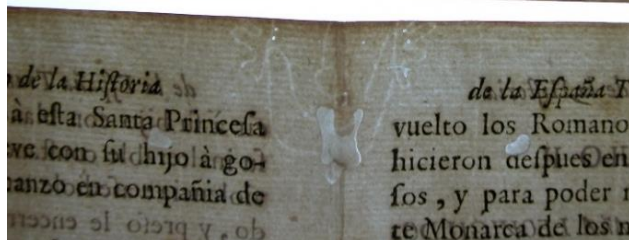 de la Hiſtoria
à eſta Santa Princeſa
con ſu hijo à go-
en compañia de
de la Eſpaña
vuelto los Romano
hicieron deſpues en
ſos, y para poder
te Monarca de los